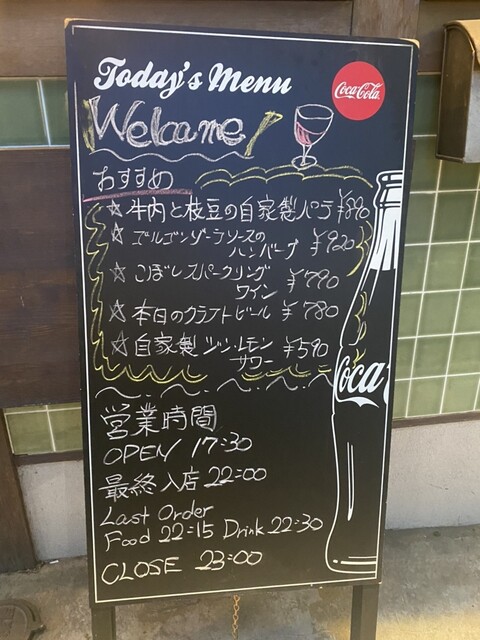 Today's Menu
Coca-Cola
Welcome!
おすすめ
☆ 牛肉と枝豆の自家製パテ ¥890
☆ ゴルゴンゾーラソースの
ハンバーグ ¥920
☆ こぼしスパークリング
ワイン ¥790
☆ 本日のクラフトビール ¥780
☆ 自家製 ジン・レモン
サワー ¥590
Coca
営業時間
OPEN 17:30
最終入店 22:00
Last Order
Food 22:15 Drink 22:30
CLOSE 23:00